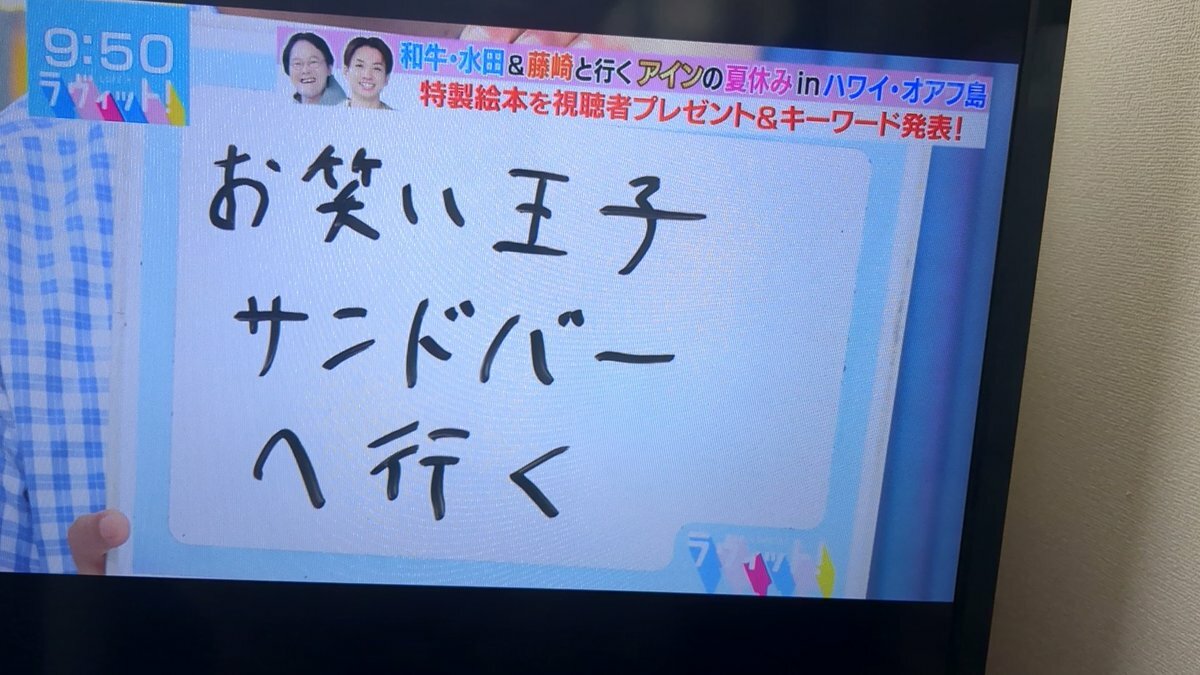 9:50
ラヴィット!
和牛・水田&藤崎と行くアインの夏休みinハワイ・オアフ島
特製絵本を視聴者プレゼント&キーワード発表!
お笑い王子
サンドバー
へ行く
ラヴィット!